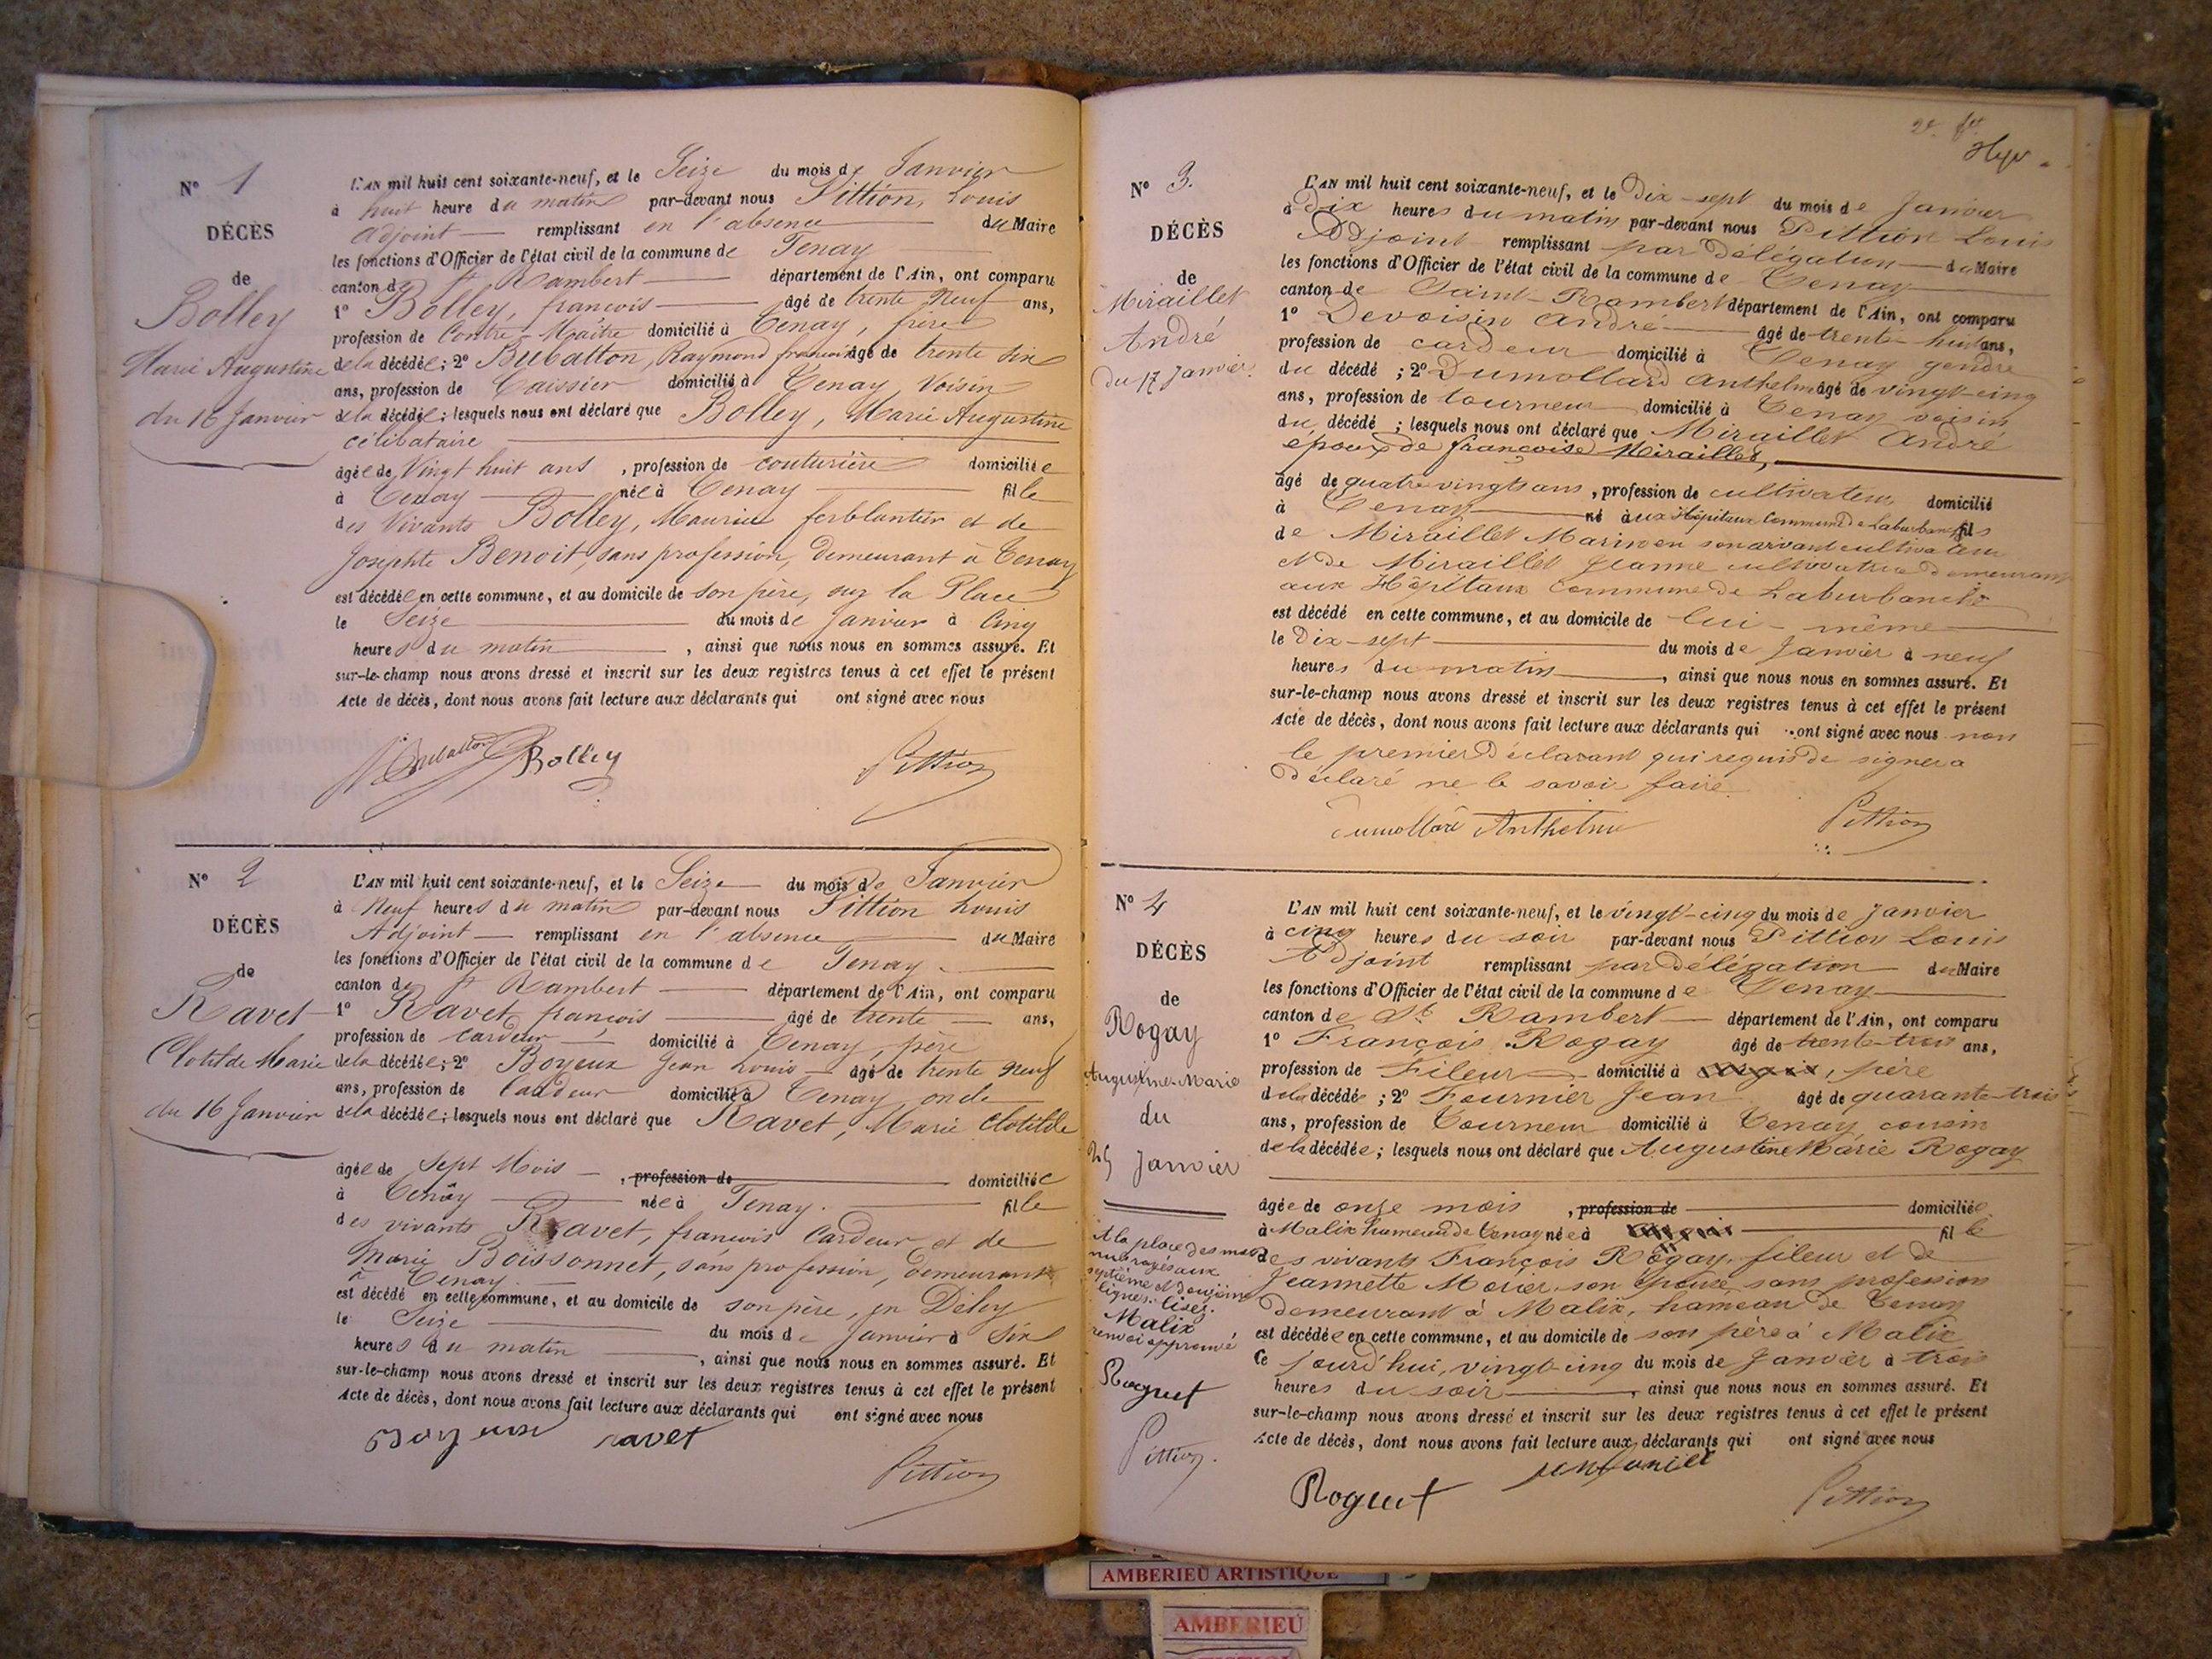 N° 1
DÉCÈS
de
Bolley
Marie Augustine
du 16 Janvier
L'AN mil huit cent soixante-neuf, et le Seize du mois de Janvier
à huit heure du matin par-devant nous Pittion, Louis
Adjoint remplissant en l'absence du Maire
les fonctions d'Officier de l'état civil de la commune de Tenay
canton de St Rambert département de l'Ain, ont comparu
1° Bolley, françois âgé de trente neuf ans,
profession de Contre-Maitre domicilié à Tenay, frère
de la décédée; 2° Bubatton, Raymond françois âgé de trente six
ans, profession de Caissier domicilié à Tenay, Voisin
de la décédée; lesquels nous ont déclaré que Bolley, Marie Augustine
célibataire
âgée de Vingt huit ans, profession de couturière domiciliée
à Tenay née à Tenay fille
des Vivants Bolley, Maurice ferblantier et de
Josephte Benoit, sans profession, demeurant à Tenay
est décédée en cette commune, et au domicile de son père, sur la Place
le Seize du mois de Janvier à Cinq
heures du matin, ainsi que nous nous en sommes assuré. Et
sur-le-champ nous avons dressé et inscrit sur les deux registres tenus à cet effet le présent
Acte de décès, dont nous avons fait lecture aux déclarants qui ont signé avec nous
Bubatton Bolley Pittion
N° 2
DÉCÈS
de
Ravet
Clotilde Marie
du 16 Janvier
L'AN mil huit cent soixante-neuf, et le Seize du mois de Janvier
à Neuf heures du matin par-devant nous Pittion Louis
Adjoint remplissant en l'absence du Maire
les fonctions d'Officier de l'état civil de la commune de Tenay
canton de St Rambert département de l'Ain, ont comparu
1° Ravet, françois âgé de trente ans,
profession de Cardeur domicilié à Tenay, père
de la décédée; 2° Boyeux Jean Louis âgé de trente neuf
ans, profession de Cardeur domicilié à Tenay, oncle
de la décédée; lesquels nous ont déclaré que Ravet, Marie Clotilde
âgée de Sept Mois, profession de domiciliée
à Tenay née à Tenay fille
des vivants Ravet, francois Cardeur et de
Marie Boissonnet, sans profession, demeurant
à Tenay
est décédé en cette commune, et au domicile de son père, en Déley
le Seize du mois de Janvier à Six
heures du matin, ainsi que nous nous en sommes assuré. Et
sur-le-champ nous avons dressé et inscrit sur les deux registres tenus à cet effet le présent
Acte de décès, dont nous avons fait lecture aux déclarants qui ont signé avec nous
Boyeux ravet
Pittion
N° 3.
DÉCÈS
de
Miraillet
André
du 17 Janvier
L'AN mil huit cent soixante-neuf, et le Dix-sept du mois de Janvier
à Dix heures du matin par-devant nous Pittion Louis
Adjoint remplissant par Délégation du Maire
les fonctions d'Officier de l'état civil de la commune de Tenay
canton de Saint-Rambert département de l'Ain, ont comparu
1° Devoisin André âgé de trente-huit ans,
profession de cardeur domicilié à Tenay gendre
du décédé; 2° Dumollard Anthelme âgé de vingt-cinq
ans, profession de tourneur domicilié à Tenay voisin
du décédé; lesquels nous ont déclaré que Miraillet André
époux de françoise Miraillet,
âgé de quatre vingts ans, profession de cultivateur domicilié
à Tenay né aux Hôpitaux Commune de Laburbanche fils
de Miraillet Marin en son vivant cultivateur
et de Miraillet Jeanne cultivatrice demeurant
aux Hôpitaux Commune de Laburbanche
est décédé en cette commune, et au domicile de lui-même
le Dix-sept du mois de Janvier à neuf
heures du matin, ainsi que nous nous en sommes assuré. Et
sur-le-champ nous avons dressé et inscrit sur les deux registres tenus à cet effet le présent
Acte de décès, dont nous avons fait lecture aux déclarants qui ont signé avec nous non
le premier Déclarant qui requis de signer a
Déclaré ne le savoir faire
Dumollard Anthelme Pittion
N° 4
DÉCÈS
de
Rogay
Augustine-Marie
du
25 Janvier
A la place des mots
rayés aux
septième et douzième
lignes. lisez.
Malix
renvoi approuvé
Roguet
Pittion.
L'AN mil huit cent soixante-neuf, et le vingt-cinq du mois de Janvier
à cinq heures du soir par-devant nous Pittion Louis
Adjoint remplissant par Délégation du Maire
les fonctions d'Officier de l'état civil de la commune de Tenay
canton de St Rambert département de l'Ain, ont comparu
1° François Rogay âgé de trente-trois ans,
profession de Fileur domicilié à père
de la décédée; 2° Fournier Jean âgé de quarante-trois
ans, profession de Tourneur domicilié à Tenay cousin
de la décédée; lesquels nous ont déclaré que Augustine Marie Rogay
âgée de onze mois, profession de domiciliée
à Malix hameau de Tenay née à fille
des vivants François Rogay. fileur et de
Jeannette Morier, son épouse, sans profession
demeurant à Malix, hameau de Tenay
est décédée en cette commune, et au domicile de son père à Malix
Ce jourd'hui, vingt-cinq du mois de Janvier à trois
heures du soir, ainsi que nous nous en sommes assuré. Et
sur-le-champ nous avons dressé et inscrit sur les deux registres tenus à cet effet le présent
Acte de décès, dont nous avons fait lecture aux déclarants qui ont signé avec nous
Roguet Pittion
AMBERIEU ARTISTIQUE
AMBERIEU